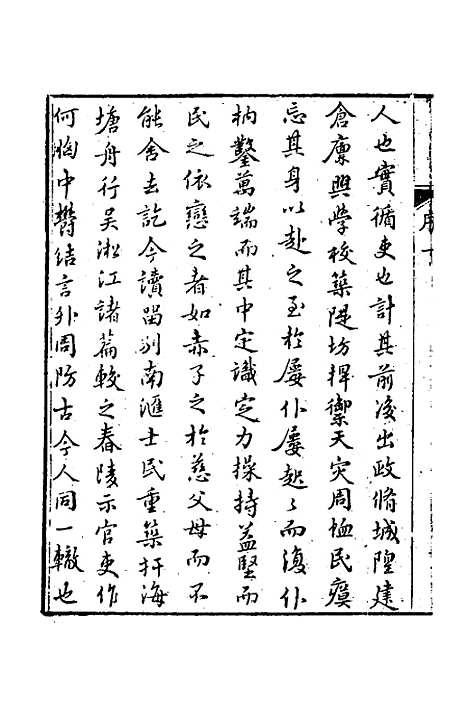 人也實循吏也計其前後出政脩城隍建
倉廩興學校築隄坊捍禦天灾周恤民瘼
忘其身以赴之至於屢仆屢起〻而復仆
枘鑿萬端而其中定識定力操持益堅而
民之依戀之者如赤子之於慈父母而不
能舍去訖今讀留别南滙士民重築捍海
塘舟行吴淞江諸篇較之舂陵示官吏作
何胸中鬱結言外周防古今人同一轍也